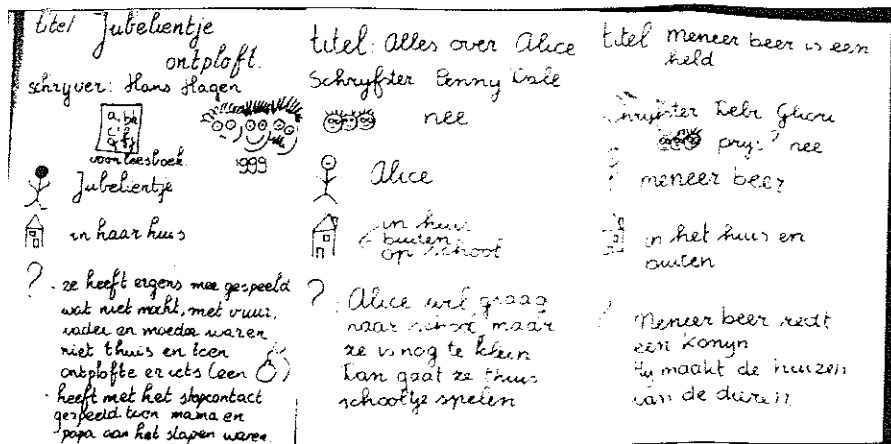 titel Jubelientje
ontploft.
schryver: Hans Hagen
a, b,
voorleesboek.
1999
Jubelientje
in haar huis
? . ze heeft ergens mee gespeeld
wat niet mocht, met vuur,
vader en moeder waren
niet thuis en toen
ontplofte er iets (een
)
. heeft met het stopcontact
gespeeld toen mama en
papa aan het slapen waren.
titel: Alles over Alice
Schryfster Penny Dale
nee
Alice
in huis
buiten
op school
? . Alice wil graag
naar school, maar
ze is nog te klein
Dan gaat ze thuis
schooltje spelen
titel meneer beer is een
held
Debi Gliori
prys? nee
meneer beer
in het huis en
buiten
? Meneer beer redt
een konyn
Hy maakt de huizen
van de dieren